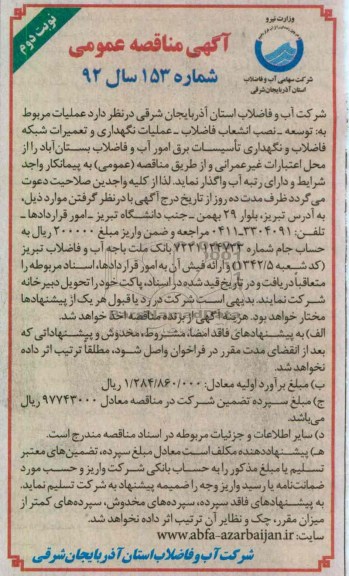 نوبت دوم
وزارت نیرو
شرکت سهامی آب و فاضلاب
استان آذربایجان شرقی
آگهی مناقصه عمومی
شماره ۱۵۳ سال ۹۲
شرکت آب و فاضلاب استان آذربایجان شرقی در نظر دارد عملیات مربوط
به: توسعه ـ نصب انشعاب فاضلاب ـ عملیات نگهداری و تعمیرات شبکه
فاضلاب و نگهداری تأسیسات برق امور آب و فاضلاب بستان‌آباد را از
محل اعتبارات غیرعمرانی و از طریق مناقصه (عمومی) به پیمانکار واجد
شرایط و دارای رتبه آب واگذار نماید. لذا از کلیه واجدین صلاحیت دعوت
می‌گردد ظرف مدت ده روز از تاریخ درج آگهی با در نظر گرفتن موارد ذیل،
به آدرس تبریز، بلوار ۲۹ بهمن ـ جنب دانشگاه تبریز ـ امور قراردادها ـ
تلفن: ۳۳۰۴۰۹۱-۰۴۱۱ مراجعه و ضمن واریز مبلغ ۲۰۰۰۰۰ ریال به
حساب جام شماره ۷۲۳۱۱۳۴۷۲۳ بانک ملت باجه آب و فاضلاب تبریز
(کد شعبه ۱۳۴۲/۵) و ارائه فیش آن به امور قراردادها، اسناد مربوطه را
متعاقباً دریافت و در تاریخ قید شده در اسناد، پاکت خود را تحویل دبیرخانه
شرکت نمایند. بدیهی است شرکت در رد یا قبول هر یک از پیشنهادها
مختار خواهد بود. هزینه آگهی از برنده مناقصه اخذ خواهد شد.
الف) به پیشنهادهای فاقد امضا، مشروط، مخدوش و پیشنهاداتی که
بعد از انقضای مدت مقرر در فراخوان واصل شود، مطلقاً ترتیب اثر داده
نخواهد شد.
ب) مبلغ برآورد اولیه معادل: ۱/۲۸۴/۸۶۰/۰۰۰ ریال
ج) مبلغ سپرده تضمین شرکت در مناقصه معادل ۹۷۷۴۳۰۰۰ ریال
می‌باشد.
د) سایر اطلاعات و جزئیات مربوطه در اسناد مناقصه مندرج است.
هـ) پیشنهاددهنده مکلف است معادل مبلغ سپرده، تضمین‌های معتبر
تسلیم یا مبلغ مذکور را به حساب بانکی شرکت واریز و حسب مورد
ضمانت‌نامه یا رسید واریز وجه را ضمیمه پیشنهاد به شرکت تسلیم نماید.
به پیشنهادهای فاقد سپرده، سپرده‌های مخدوش، سپرده‌های کمتر از
میزان مقرر، چک و نظایر آن ترتیب اثر داده نخواهد شد.
سایت: www.abfa-azarbaijan.ir
شرکت آب و فاضلاب استان آذربایجان شرقی